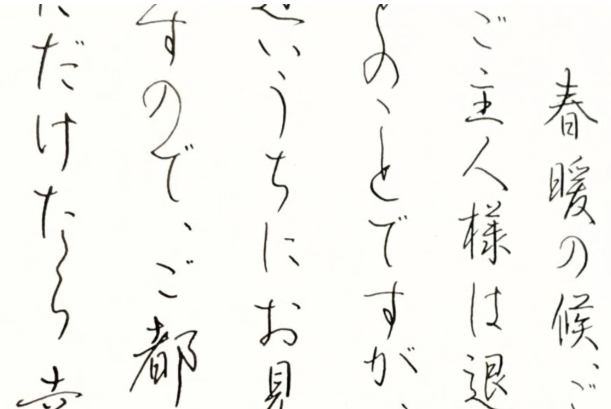 春暖の候、ご
ご主人様は退
のことですが、
いうちにお見
すので、ご都
ただけたら幸